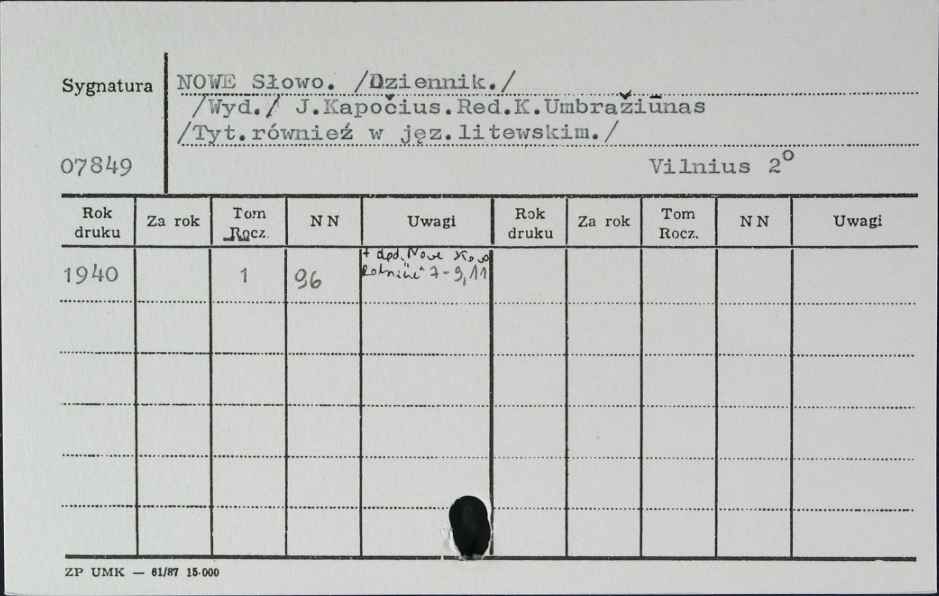 Sygnatura
NOWE Słowo. /Dziennik./
/Wyd./ J.Kapočius.Red.K.Umbražiūnas
/Tyt.również w jęz.litewskim./
07849
Vilnius 2°
Rok druku Za rok Tom Rocz. NN Uwagi Rok druku Za rok Tom Rocz. NN Uwagi
+ dod. "Nowe Słowo
1940 1 96 Rolnicze" 7-9, 11
ZP UMK — 61/87 15.000